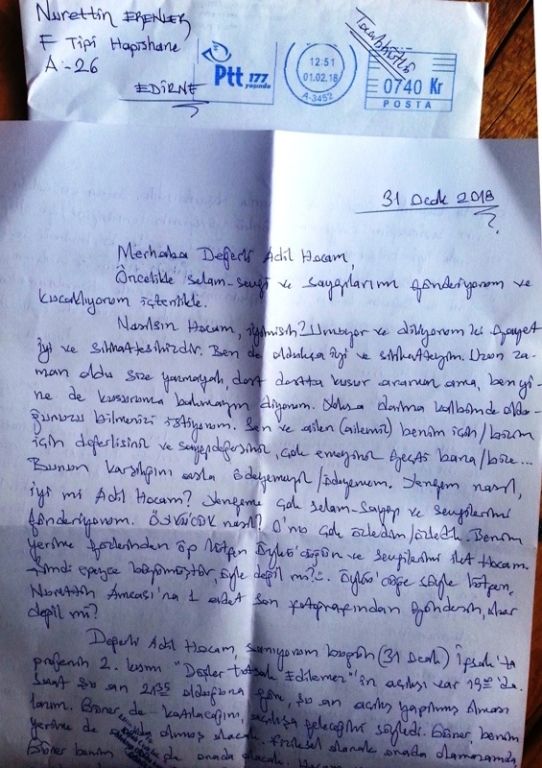 Nurettin ERENLER
F Tipi Hapishane
A-26
EDİRNE
Ptt 177
yaşında
12.51
01.02.18
A-3452
Taahhütlü
0740 Kr
POSTA
31 Ocak 2018
Merhaba Değerli Adil Hocam,
Öncelikle selam-sevgi ve saygılarımı gönderiyorum ve
kucaklıyorum içtenlikle.
Nasılsın Hocam, iyimisin? Umuyor ve diliyorum ki gayet
iyi ve sıhhattesinizdir. Ben de oldukça iyi ve sıhhatteyim. Uzun za-
man oldu size yazmayalı, dost dostta kusur aramaz ama, ben yi-
ne de kusuruma bakmayın diyorum. Yoksa daima kalbimde oldu-
ğunuzu bilmenizi istiyorum. Sen ve ailen (ailemiz) benim için/bizim
için değerlisiniz ve saygıdeğersiniz, çok emeğiniz geçti bana/bize...
Bunun karşılığını asla ödeyemeyiz/ödeyemem. Yengem nasıl,
iyi mi Adil Hocam? Yengeme çok selam-saygı ve sevgilerimi
gönderiyorum. Öykücük nasıl? O'nu çok özledim/özledik. Benim
yerime gözlerinden öp lütfen Öykü'cüğün ve sevgilerimi ilet Hocam.
Şimdi epeyce büyümüştür, öyle değil mi? Öykü'cüğe söyle lütfen,
Nurettin Amcası'na 1 adet son fotoğrafından göndersin, olur
değil mi?
Değerli Adil Hocam, sanıyorum bugün (31 Ocak) İpsala'ta
projenin 2. kısmı "Düşler Tutsak Edilemez"in açılışı var 19:00'da.
Saat şu an 21:35 olduğuna göre, şu an açılış yapılmış olması
lazım. Güner, de katılacağını, açılışa geleceğini söyledi. Güner, benim
yerime de orada olmuş olacak, fiziksel olarak orada olamasam da
Güner benim de orada olacak. Hocam